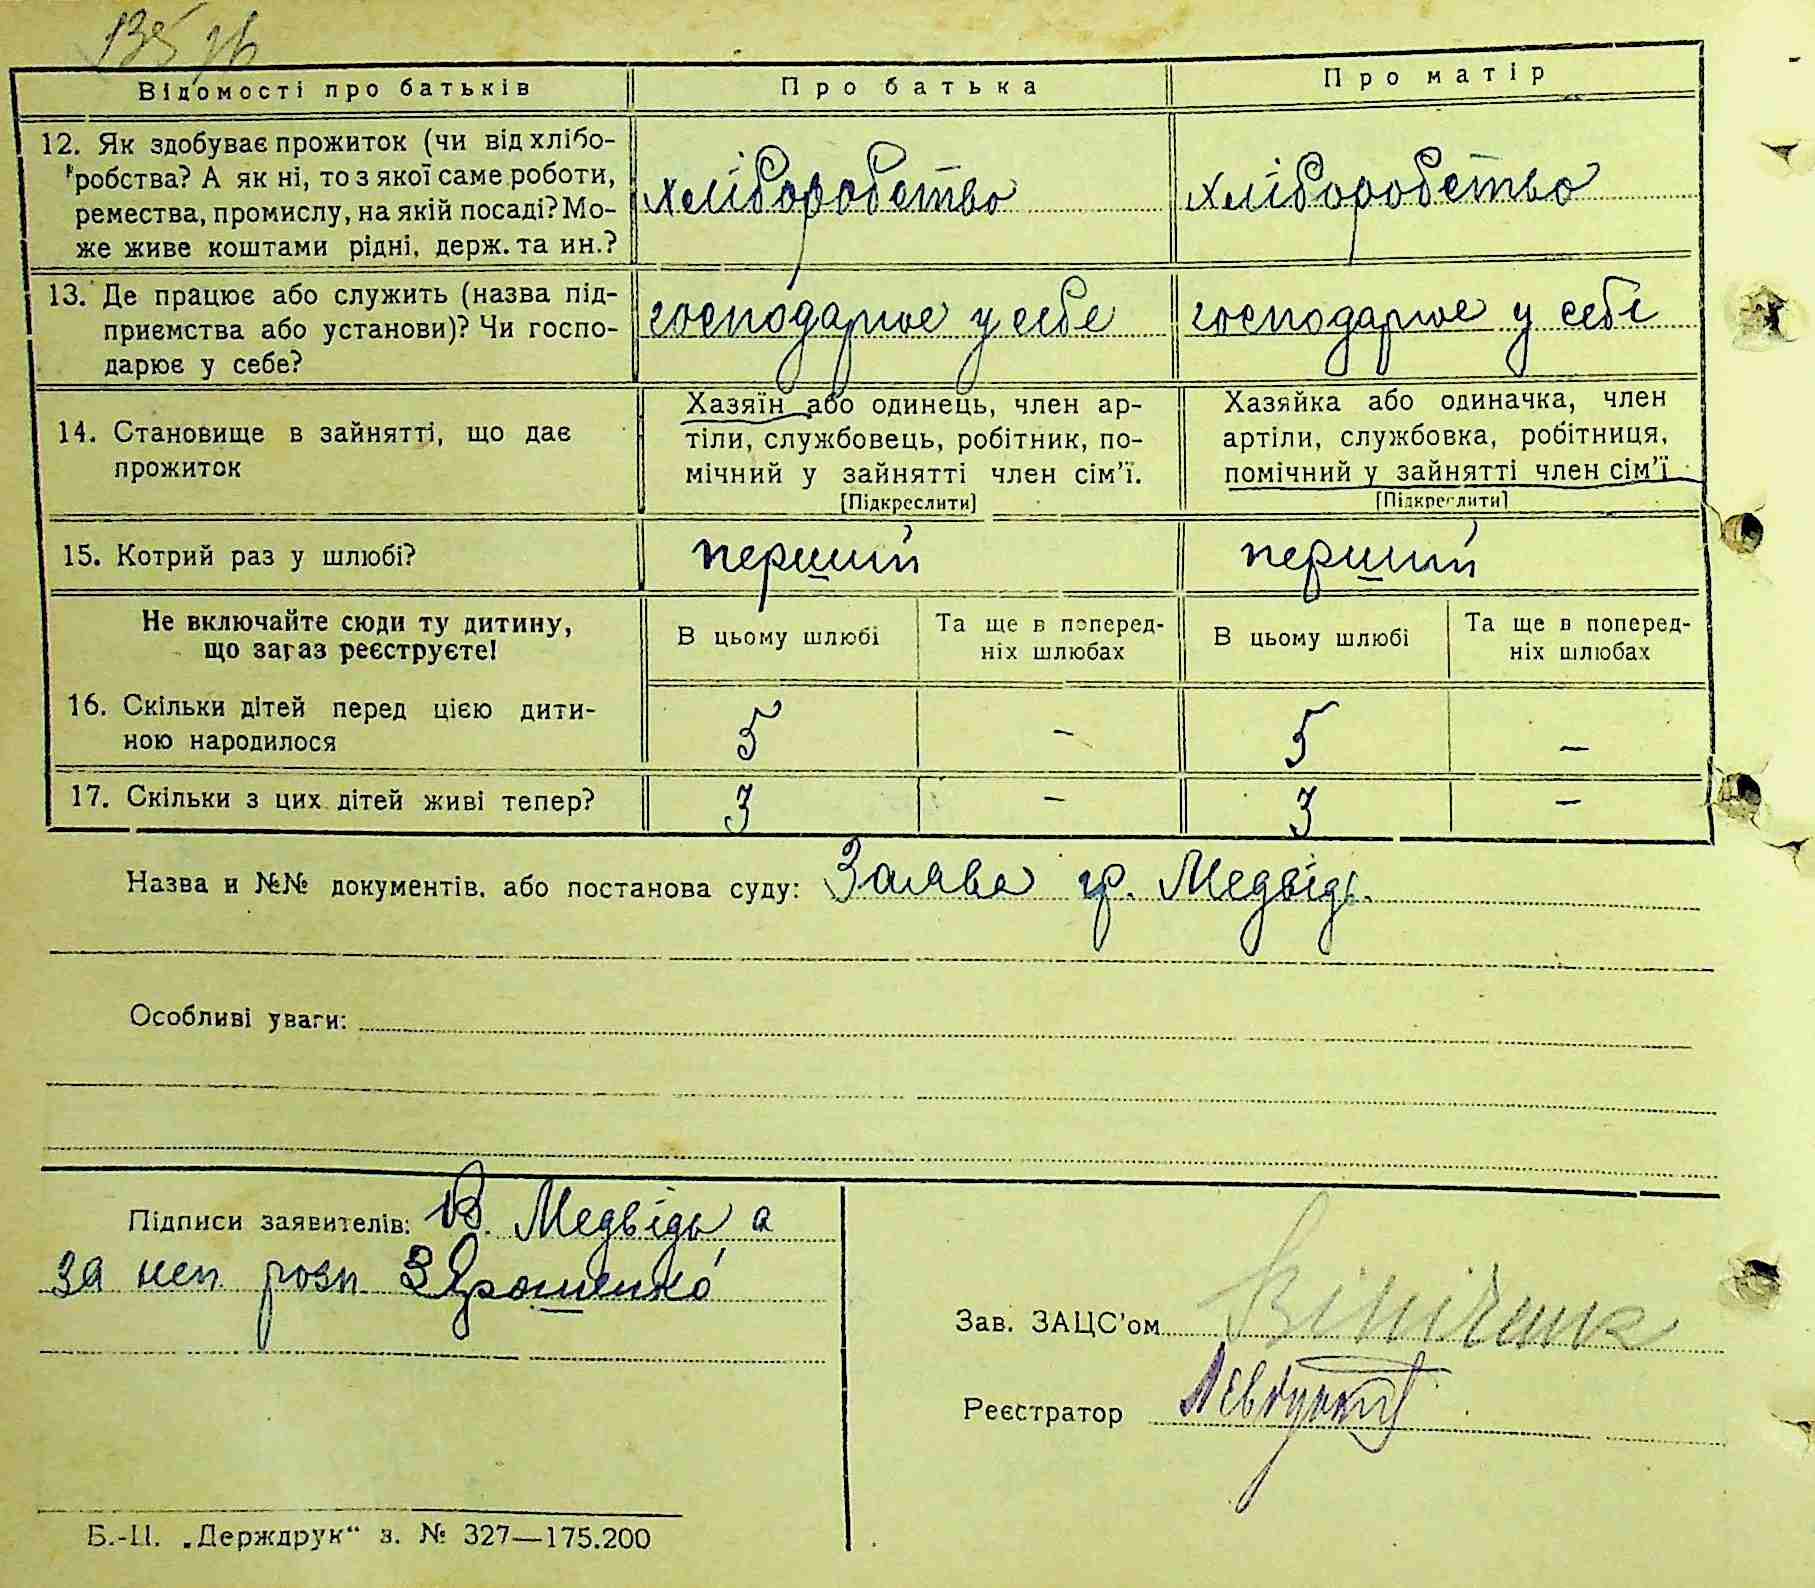 135 зв
Відомості про батьків Про батька Про матір
12. Як здобуває прожиток (чи від хлібо-
робства? А як ні, то з якої саме роботи,
ремества, промислу, на якій посаді? Мо-
же живе коштами рідні, держ. та ин.?
хліборобство хліборобство
13. Де працює або служить (назва під-
приємства або установи)? Чи госпо-
дарює у себе?
господарює у себе господарює у себе
14. Становище в зайнятті, що дає
прожиток
Хазяїн або одинець, член ар-
тіли, службовець, робітник, по-
мічний у зайнятті член сім'ї.
[Підкреслити]
Хазяйка або одиначка, член
артіли, службовка, робітниця,
помічний у зайнятті член сім'ї
[Підкреслити]
15. Котрий раз у шлюбі? перший перший
Не включайте сюди ту дитину,
що зараз реєструєте!
В цьому шлюбі
Та ще в поперед-
ніх шлюбах
В цьому шлюбі
Та ще в поперед-
ніх шлюбах
16. Скільки дітей перед цією дити-
ною народилося
5 – 5 –
17. Скільки з цих дітей живі тепер? 3 – 3 –
Назва и №№ документів, або постанова суду: Заява гр. Медвідь.
Особливі уваги:
Підписи заявителів: В. Медвідь а
за неп розп З Ярошенко
Зав. ЗАЦС'ом
Реєстратор
Б.-Ц. „Держдрук“ з. № 327—175.200